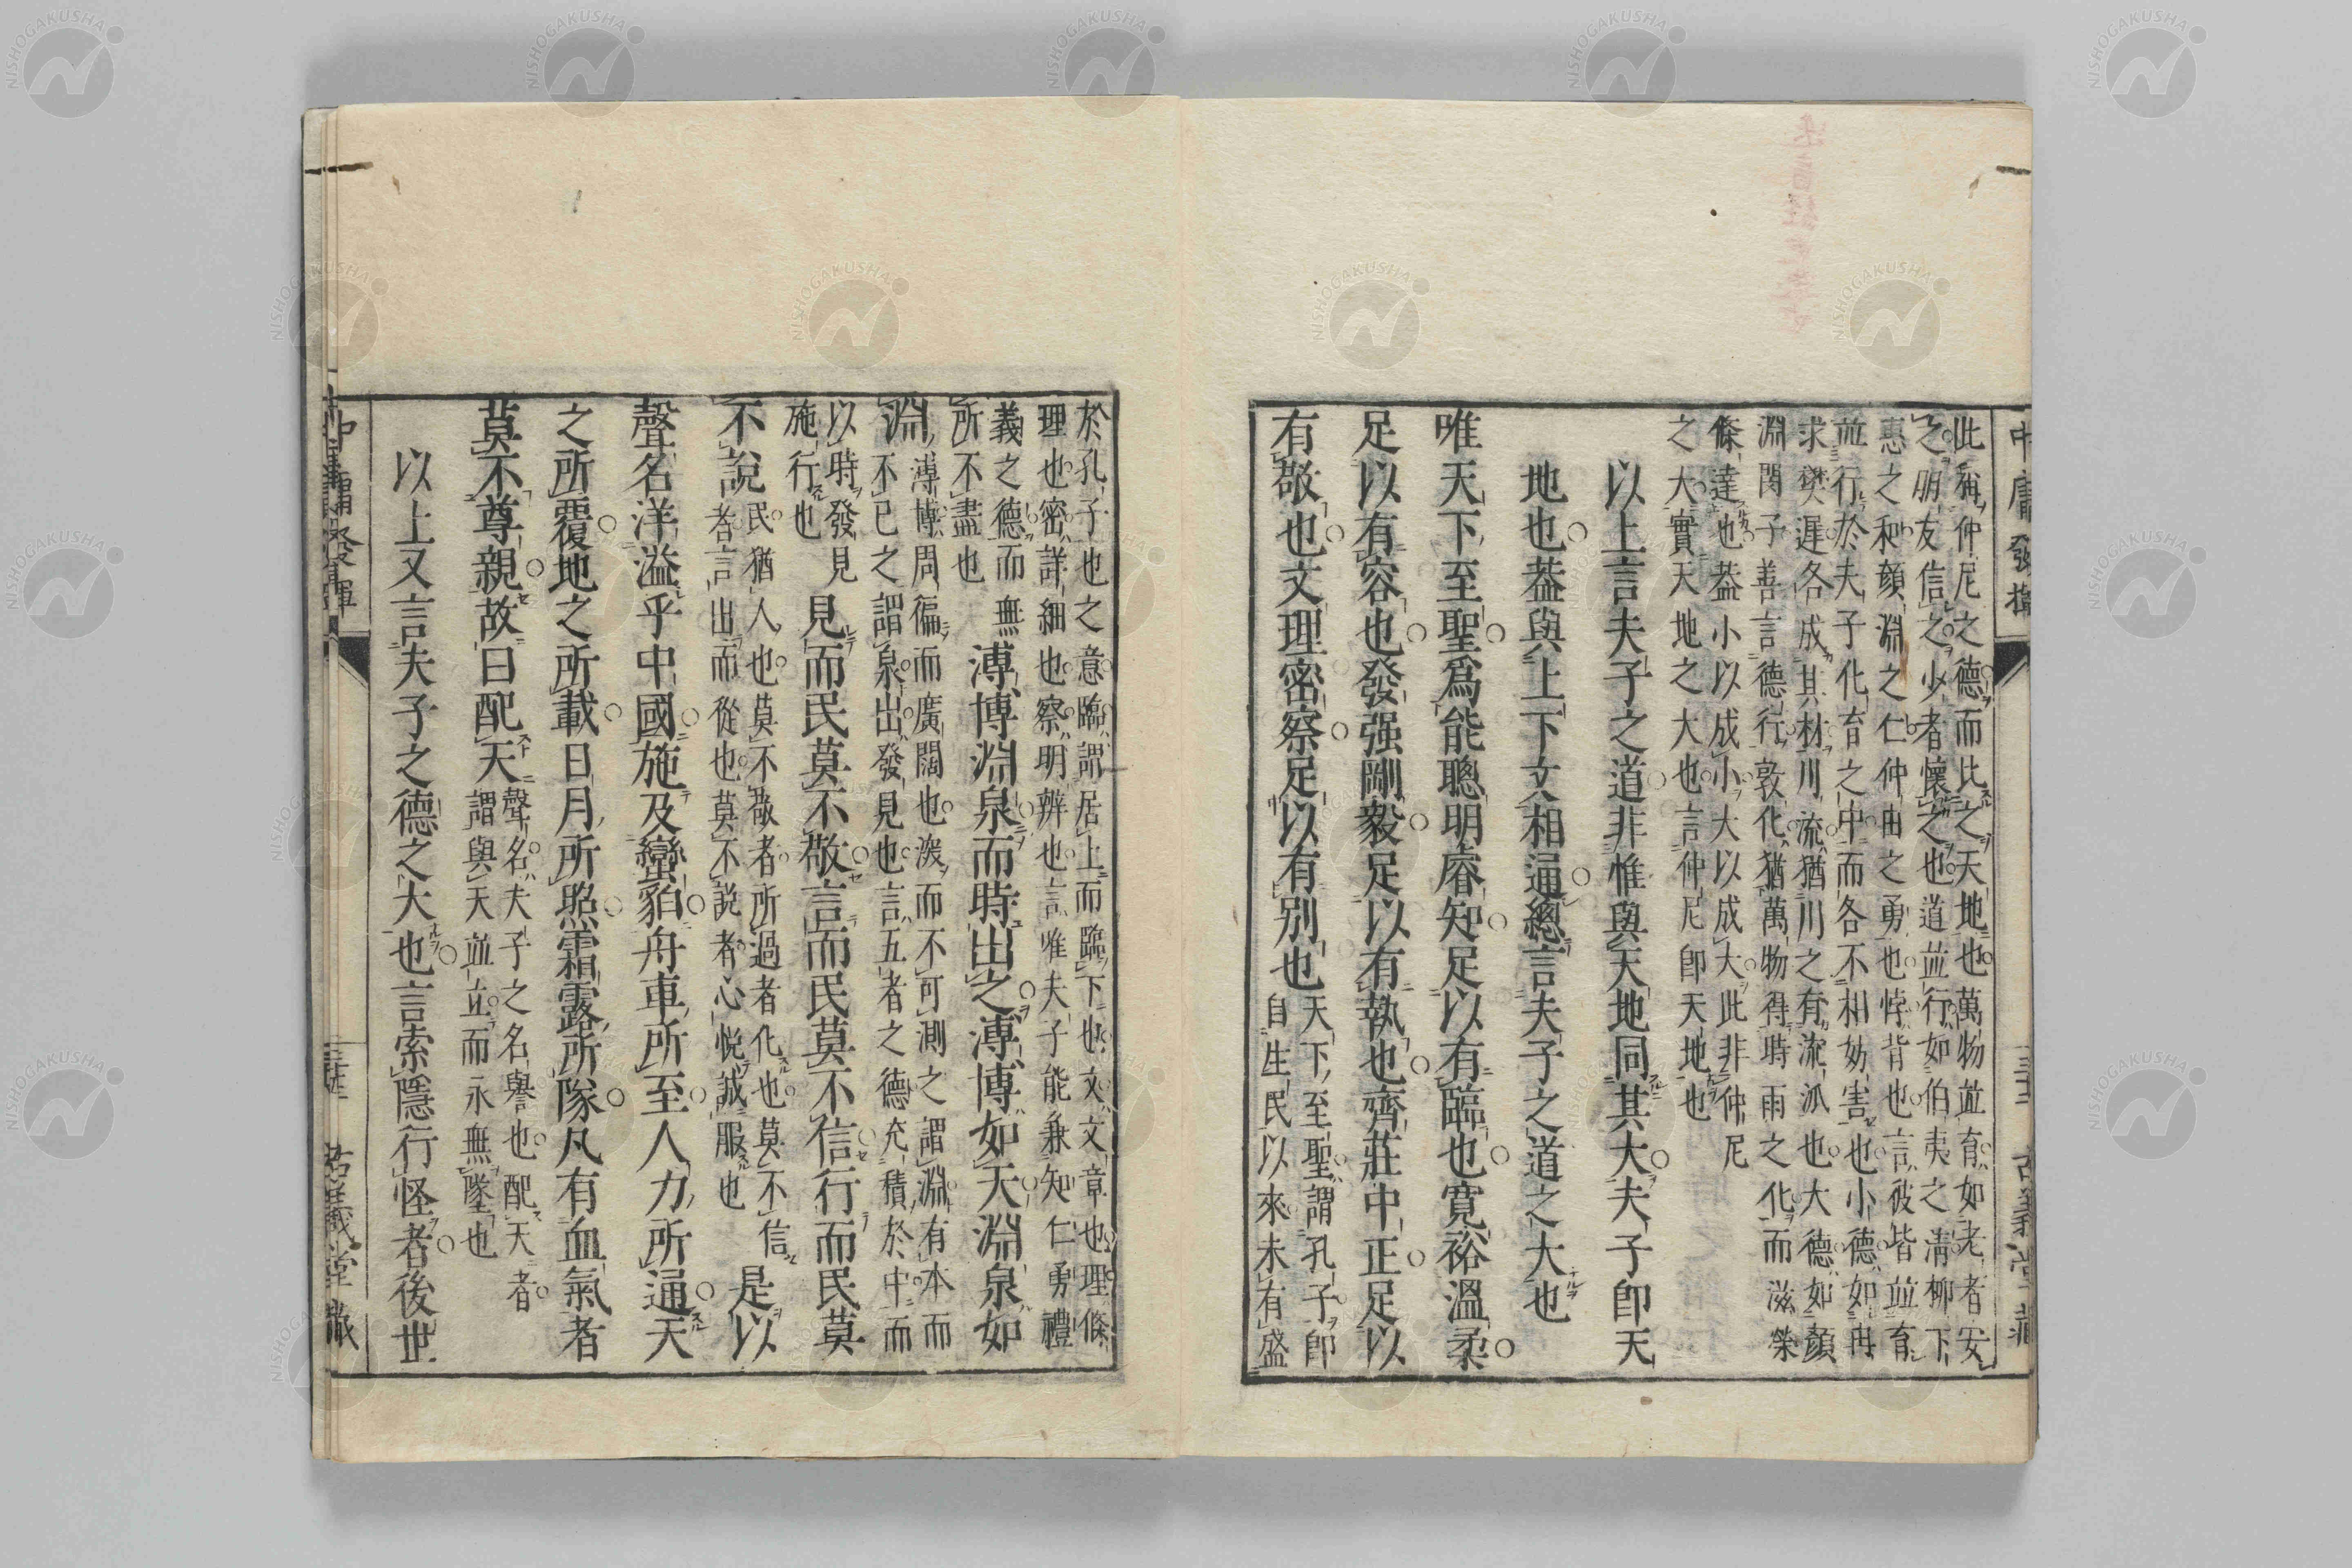 中庸發揮
古義堂藏
此稱仲尼之德而比之天地也萬物並育如老者安
之朋友信之少者懷之也道並行如伯夷之清柳下
惠之和顏淵之仁仲由之勇也悖背也言彼皆並育
並行於夫子化育之中而各不相妨害也小德如冉
求樊遲各成其材川流猶川之有流派也大德如顏
淵閔子善言德行敦化猶萬物得時雨之化而滋榮
條達也蓋小以成小大以成大此非仲尼
之大實天地之大也言仲尼卽天地也
以上言夫子之道非惟與天地同其大夫子卽天
地也蓋與上下文相通總言夫子之道之大也
唯天下至聖爲能聰明睿知足以有臨也寬裕溫柔
足以有容也發强剛毅足以有執也齊莊中正足以
有敬也文理密察足以有別也
天下至聖謂孔子卽
自生民以來未有盛
於孔子也之意臨謂居上而臨下也文文章也理條
理也密詳細也察明辨也言唯夫子能兼知仁勇禮
義之德而無
所不盡也
溥博淵泉而時出之溥博如天淵泉如
淵
溥博周徧而廣闊也淵深而不可測之謂淵有本而
不已之謂泉出發見也言五者之德充積於中而
以時發見
施行也
見而民莫不敬言而民莫不信行而民莫
不說
民猶人也莫不敬者所過者化也莫不信
者言出而從也莫不說者心悅誠服也
是以
聲名洋溢乎中國施及蠻貊舟車所至人力所通天
之所覆地之所載日月所照霜露所隊凡有血氣者
莫不尊親故曰配天
聲名夫子之名譽也配天者
謂與天並立而永無墜也
以上又言夫子之德之大也言索隱行怪者後世
中庸發揮
古義堂藏